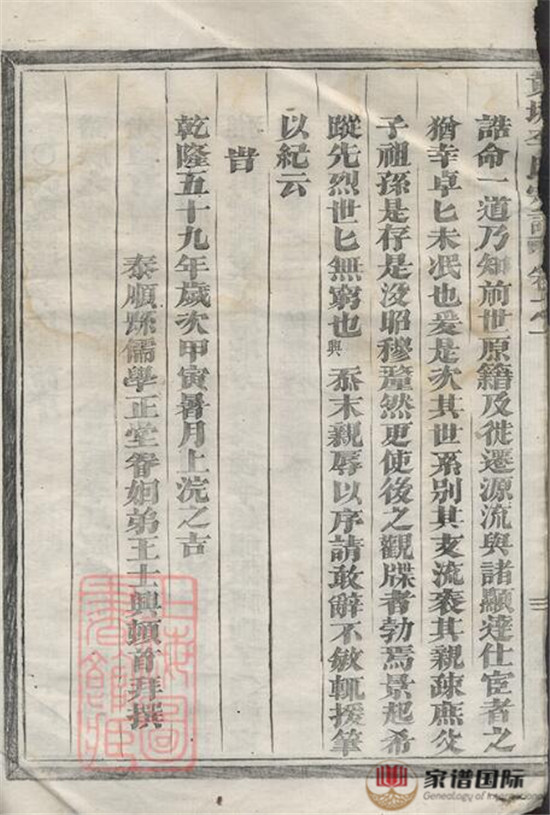 誥命一道乃知前世原籍及徙遷源流與諸顯達仕宦者之
猶幸卓匕未泯也爰是次其世系別其支流袤其親疎庶父
子祖孫是存是沒昭穆釐然更使後之觀牒者勃焉景起希
蹤先烈世匕無窮也興忝末親辱以序請敢辭不敏輒援筆
以紀云
旹
乾隆五十九年歲次甲寅暑月上浣之吉
泰順縣儒學正堂眷姻弟王士興頓首拜撰
家谱国际
Genealogy of International